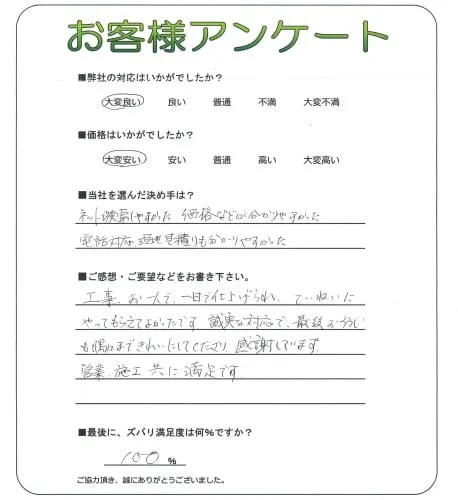 お客様アンケート
■弊社の対応はいかがでしたか?
大変良い 良い 普通 不満 大変不満
■価格はいかがでしたか?
大変安い 安い 普通 高い 大変高い
■当社を選んだ決め手は?
ネット検索しやすかった 価格などが分かりやすかった
電話対応、現地見積りも分かりやすかった
■ご感想・ご要望などをお書き下さい。
工事、お一人で、一日で仕上げられ、ていねいに
やってもらえてよかったです。誠実な対応で、最後のそうじ
も隅々まできれいにしてくださり、感謝しています。
営業、施工 共に満足です。
■最後に、ズバリ満足度は何%ですか?
100 %
ご協力頂き、誠にありがとうございました。